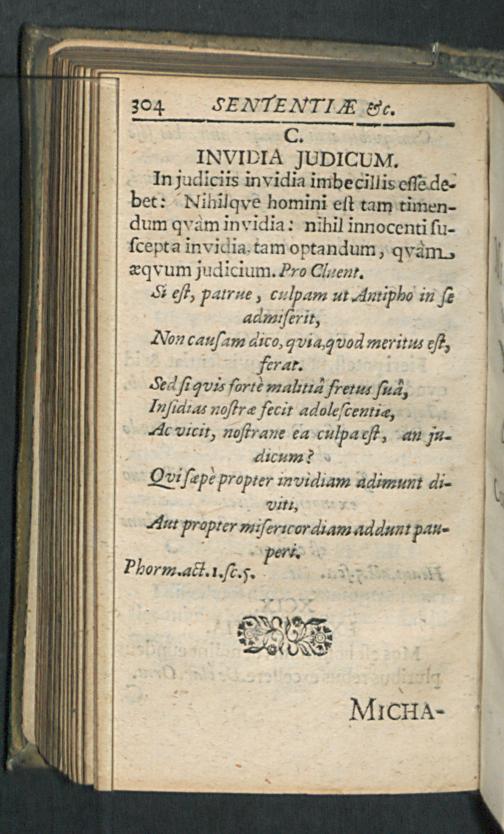 304 SENTENTIÆ &c.
C.
INVIDIA JUDICUM.
In judiciis invidia imbecillis esse de-
bet: Nihilqve homini est tam timen-
dum qvàm invidia: nihil innocenti su-
scepta invidia, tam optandum, qvàm
æqvum judicium. Pro Cluent.
Si est, patrue, culpam ut Antipho in se
admiserit,
Non causam dico, qvia, qvod meritus est,
ferat.
Sed si qvis fortè malitiâ fretus suâ,
Insidias nostræ fecit adolescentiæ,
Ac vicit, nostrane ea culpa est, an ju-
dicum?
Qvi sæpè propter invidiam adimunt di-
viti,
Aut propter misericordiam addunt pau-
peri.
Phorm. act. 1. sc. 5.
MICHA-